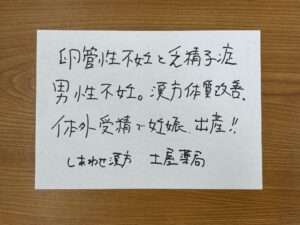 卵管性不妊と乏精子症
男性不妊。漢方体質改善、
体外受精で妊娠、出産!!
しあわせ漢方 土屋薬局